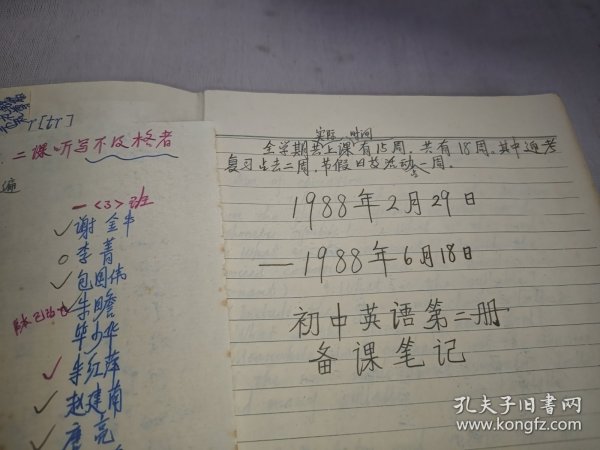 r [tr]
二课听写不及格者
遍
一<3>班
谢金丰
李菁
包国伟
朱瞻
毕少华
朱红萍
赵建南
唐亮
实际 时间
全学期共上课有15周。共有18周。其中迎考
复习占去二周,节假日及活动一周。
1988年2月29日
—1988年6月18日
初中英语第二册
备课笔记
孔夫子旧书网
www.kongfz.com